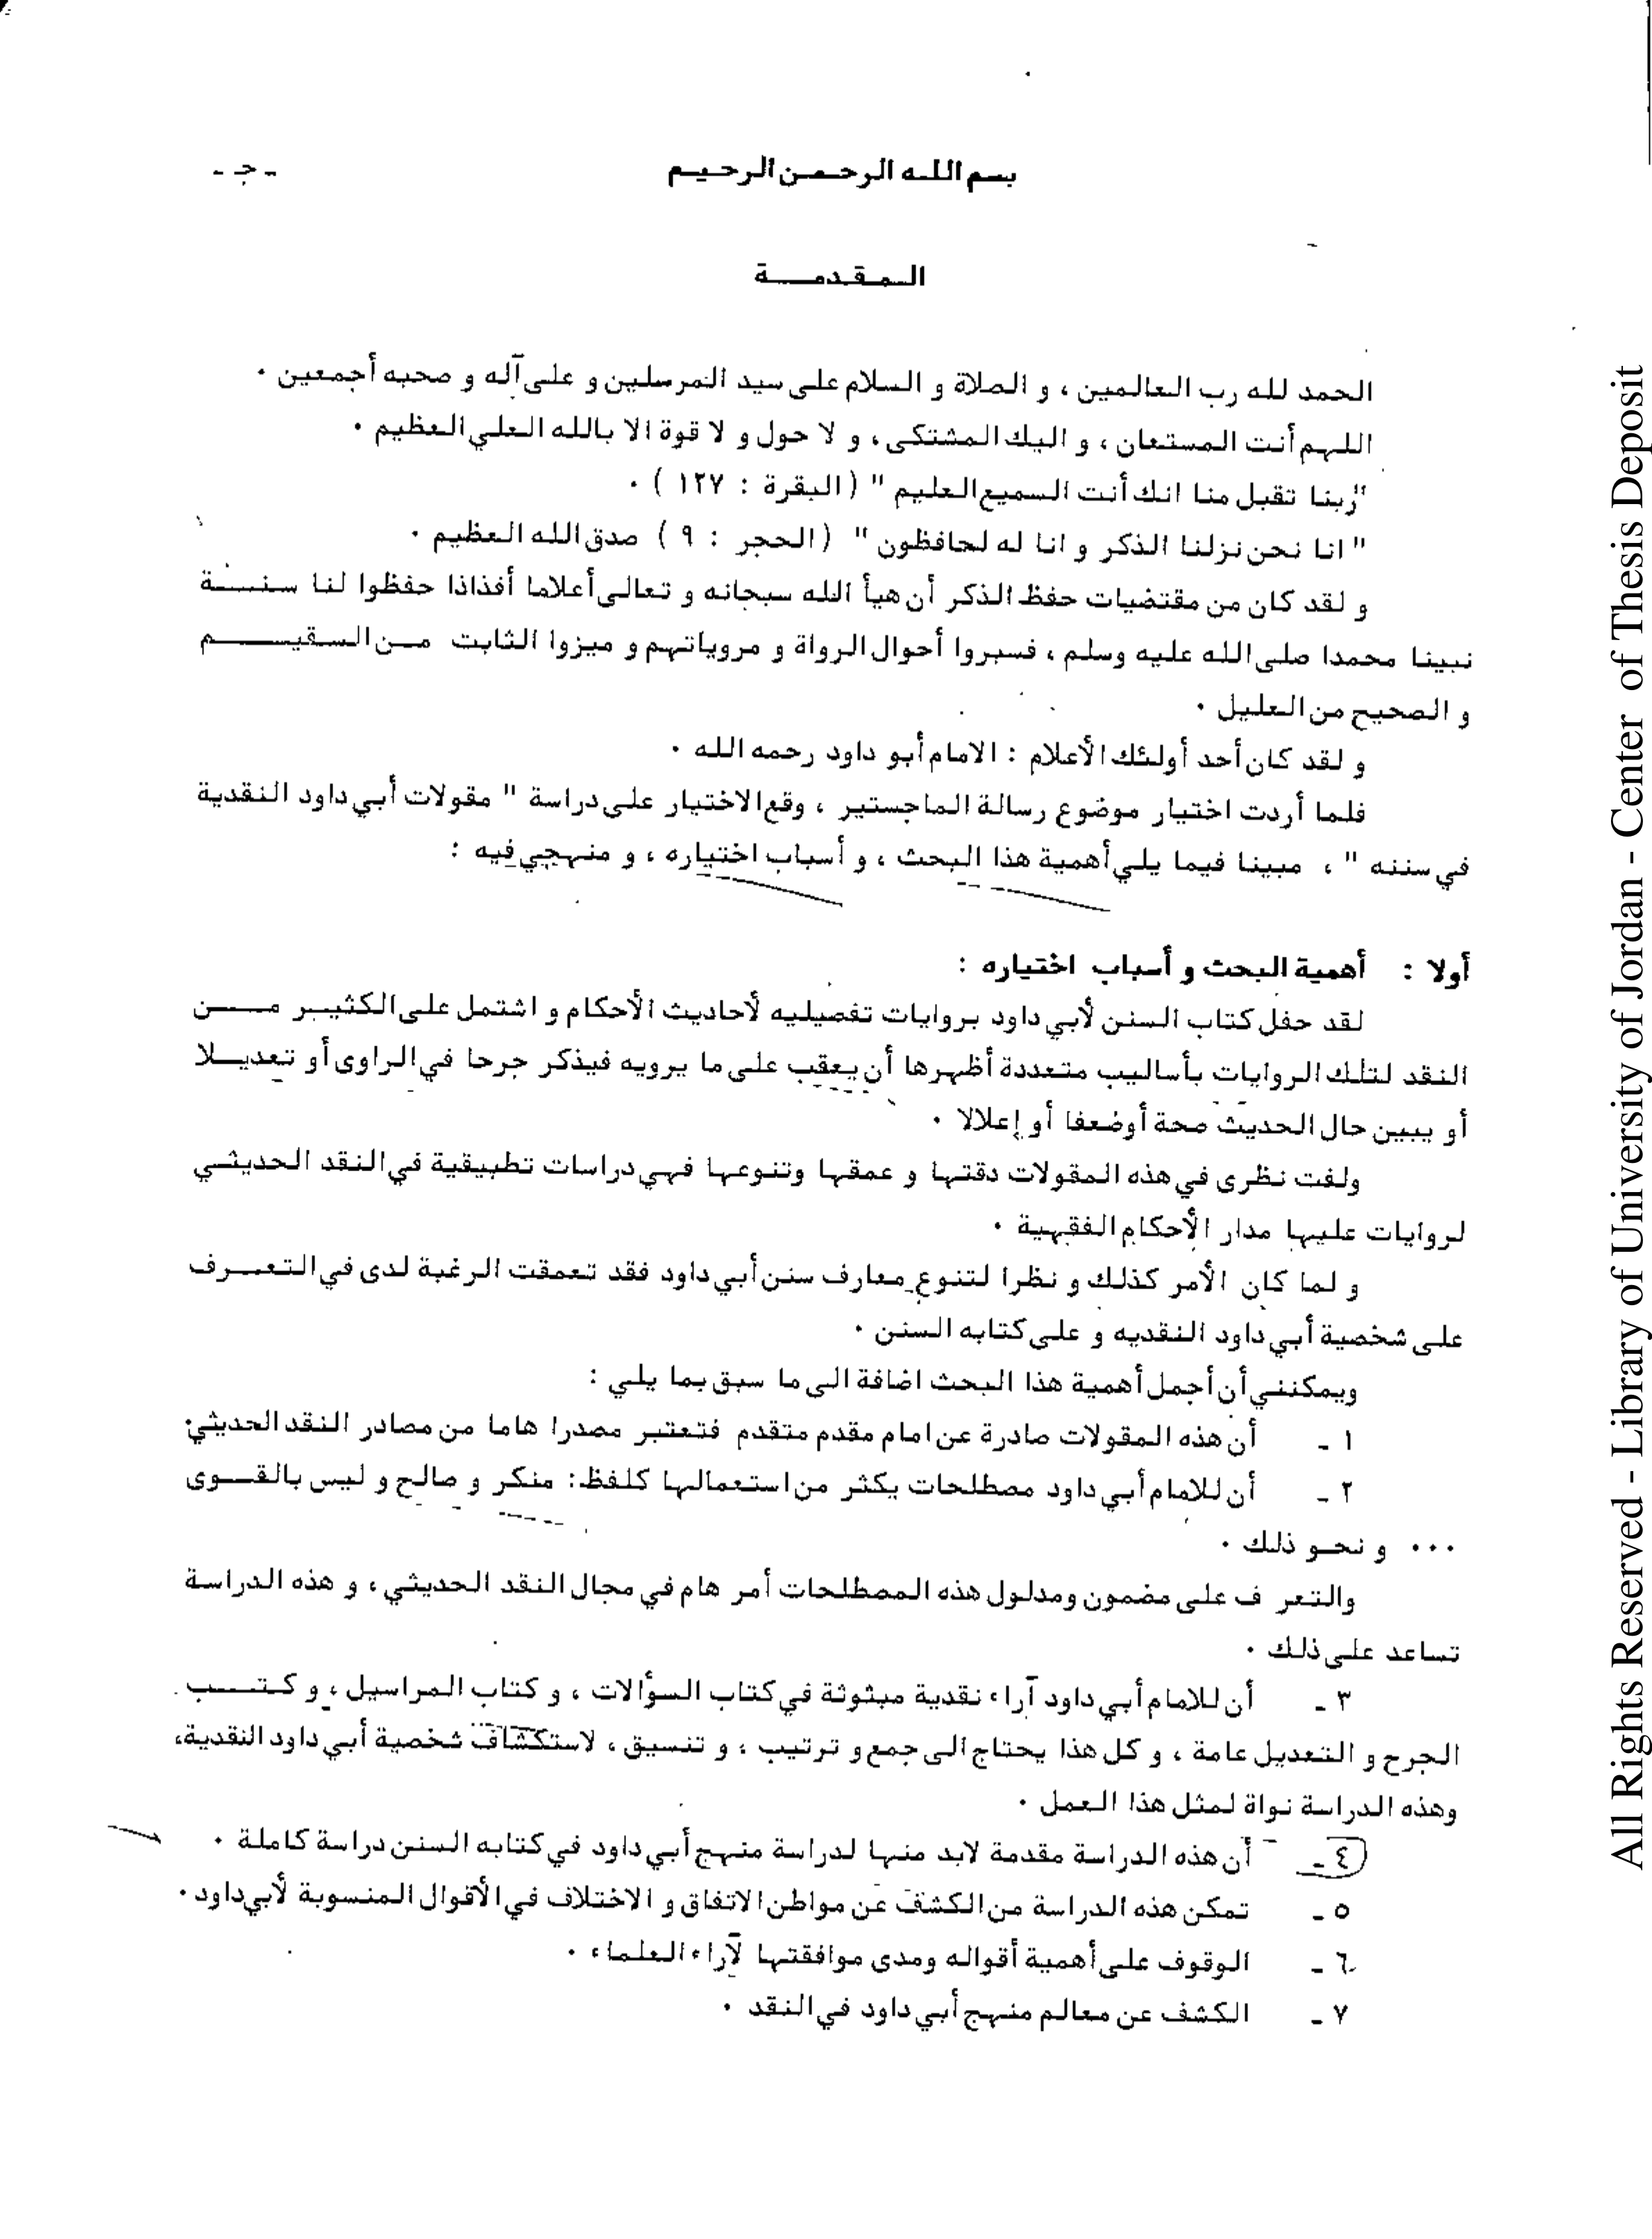 - ج -
بسم الله الرحمن الرحيم
المقدمة
الحمد لله رب العالمين ، و الصلاة و السلام على سيد المرسلين و على آله و صحبه أجمعين .
اللهم أنت المستعان ، و اليك المشتكى ، و لا حول و لا قوة الا بالله العلي العظيم .
"ربنا تقبل منا انك أنت السميع العليم " ( البقرة : ١٢٧ ) .
" انا نحن نزلنا الذكر و انا له لحافظون " ( الحجر : ٩ ) صدق الله العظيم .
و لقد كان من مقتضيات حفظ الذكر أن هيأ الله سبحانه و تعالى أعلاما أفذاذا حفظوا لنا سنة
نبينا محمدا صلى الله عليه وسلم ، فسبروا أحوال الرواة و مروياتهم و ميزوا الثابت من السقيم
و الصحيح من العليل .
و لقد كان أحد أولئك الأعلام : الامام أبو داود رحمه الله .
فلما أردت اختيار موضوع رسالة الماجستير ، وقع الاختيار على دراسة " مقولات أبي داود النقدية
في سننه " ، مبينا فيما يلي أهمية هذا البحث ، و أسباب اختياره ، و منهجي فيه :
أولا : أهمية البحث و أسباب اختياره :
لقد حفل كتاب السنن لأبي داود بروايات تفصيليه لأحاديث الأحكام و اشتمل على الكثير من
النقد لتلك الروايات بأساليب متعددة أظهرها أن يعقب على ما يرويه فيذكر جرحا في الراوى أو تعديلا
أو يبين حال الحديث صحة أوضعفا أو إعلالا .
ولفت نظرى في هذه المقولات دقتها و عمقها وتنوعها فهي دراسات تطبيقية في النقد الحديثي
لروايات عليها مدار الأحكام الفقهية .
و لما كان الأمر كذلك و نظرا لتنوع معارف سنن أبي داود فقد تعمقت الرغبة لدى في التعرف
على شخصية أبي داود النقديه و على كتابه السنن .
ويمكنني أن أجمل أهمية هذا البحث اضافة الى ما سبق بما يلي :
١ - أن هذه المقولات صادرة عن امام مقدم متقدم فتعتبر مصدرا هاما من مصادر النقد الحديثي.
٢ - أن للامام أبي داود مصطلحات يكثر من استعمالها كلفظ : منكر و صالح و ليس بالقوى
... و نحو ذلك .
والتعر ف على مضمون ومدلول هذه المصطلحات أمر هام في مجال النقد الحديثي ، و هذه الدراسة
تساعد على ذلك .
٣ - أن للامام أبي داود آراء نقدية مبثوثة في كتاب السؤالات ، و كتاب المراسيل ، و كتب
الجرح و التعديل عامة ، و كل هذا يحتاج الى جمع و ترتيب ، و تنسيق ، لاستكشاف شخصية أبي داود النقدية،
وهذه الدراسة نواة لمثل هذا العمل .
٤ - أن هذه الدراسة مقدمة لابد منها لدراسة منهج أبي داود في كتابه السنن دراسة كاملة .
٥ - تمكن هذه الدراسة من الكشف عن مواطن الاتفاق و الاختلاف في الأقوال المنسوبة لأبي داود .
٦ - الوقوف على أهمية أقواله ومدى موافقتها لآراء العلماء .
٧ - الكشف عن معالم منهج أبي داود في النقد .
All Rights Reserved - Library of University of Jordan - Center of Thesis Deposit